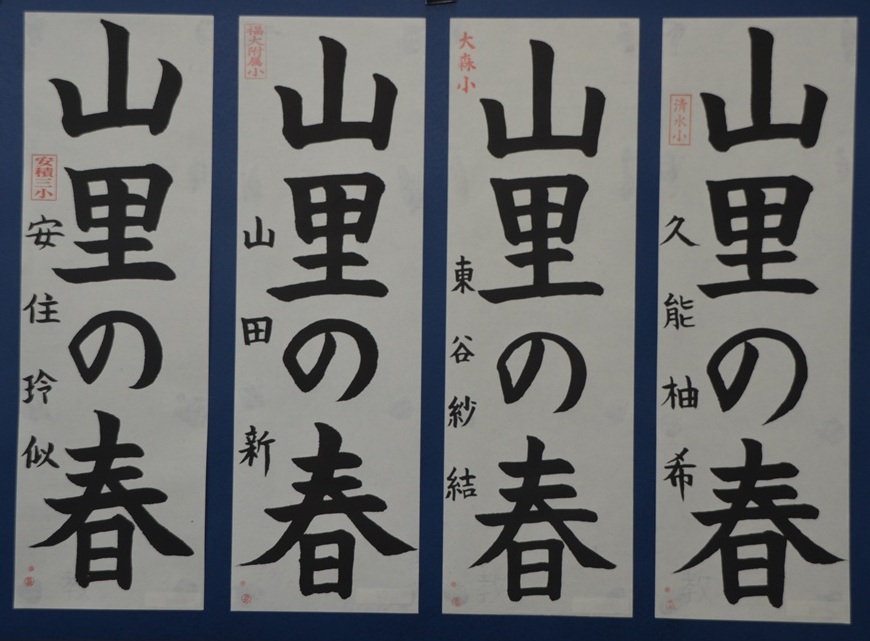 山里の春
清水小
久能柚希
山里の春
大森小
東谷紗結
山里の春
福大附属小
山田新
山里の春
安積三小
安住玲似